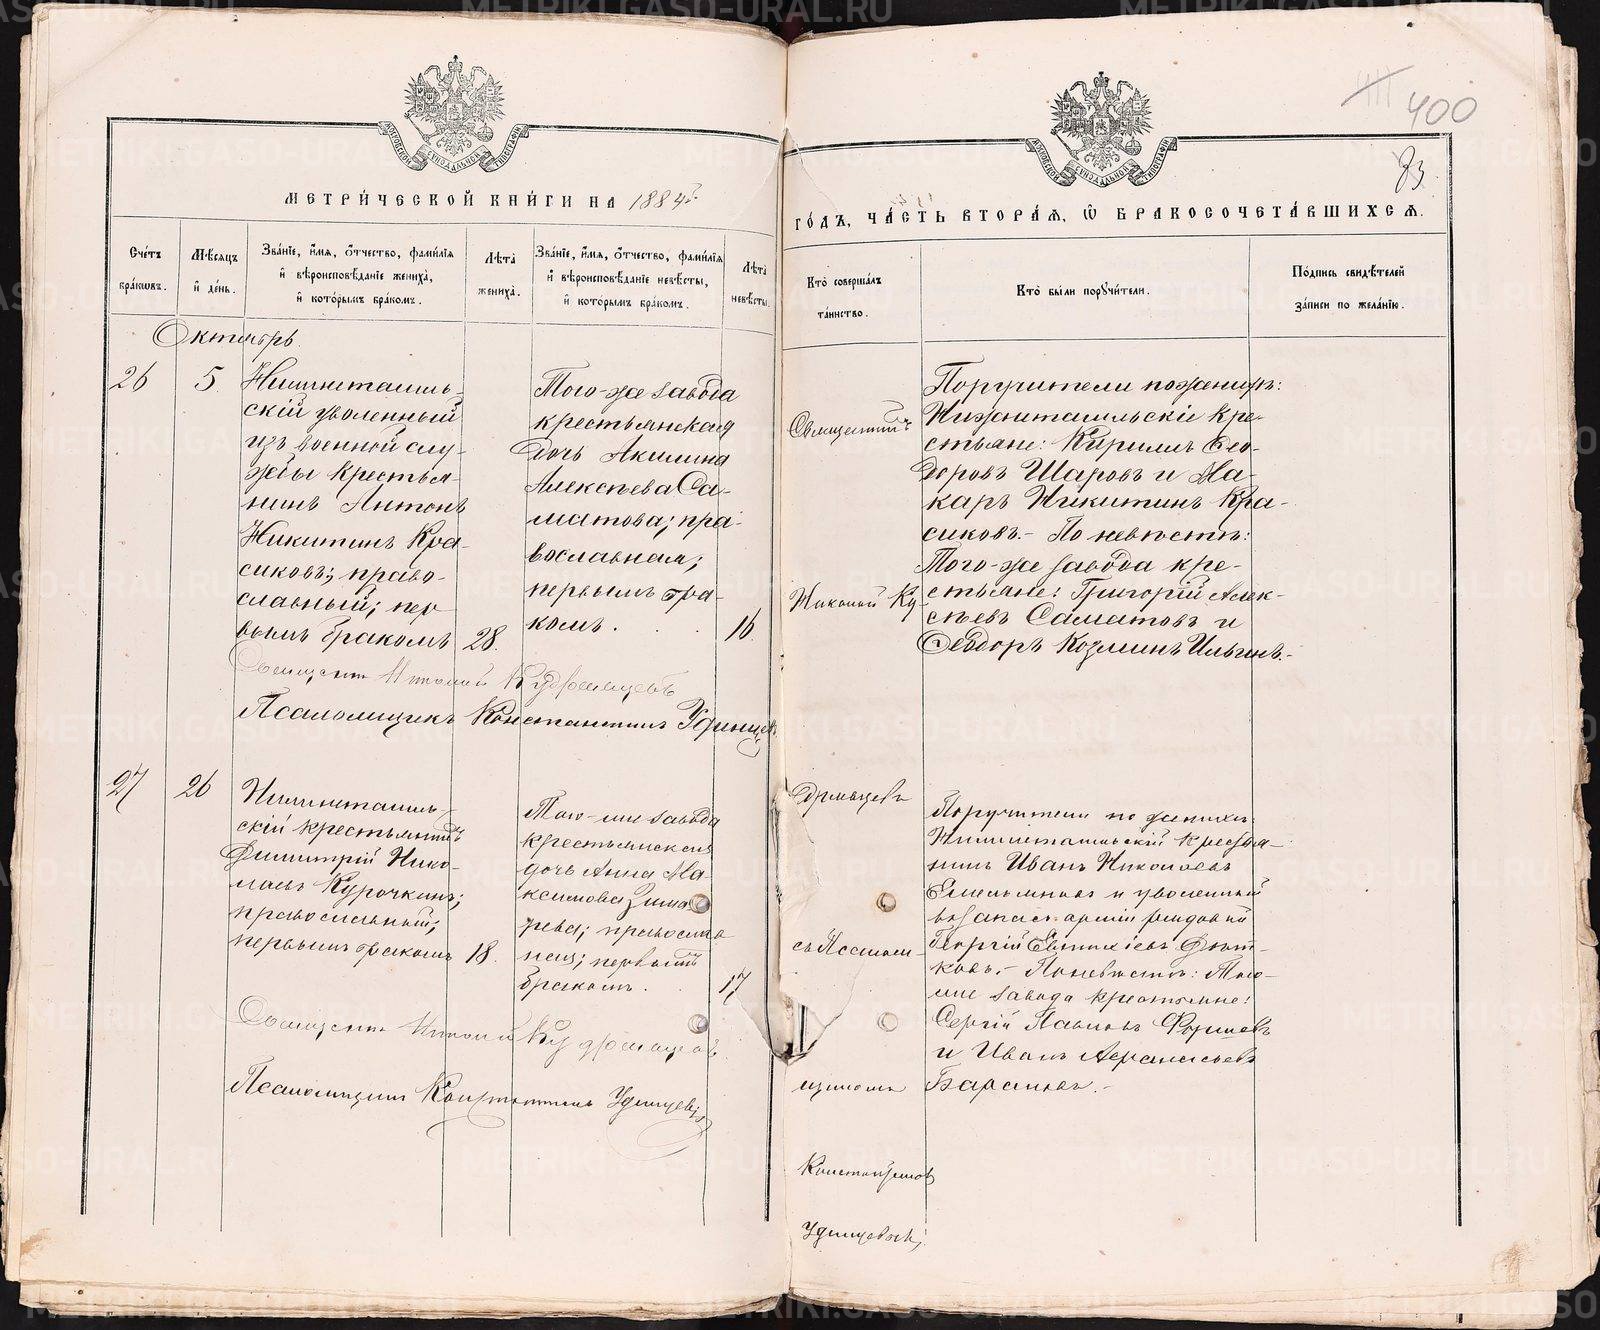 400
83
МЕТРИ́ЧЕСКОЙ КНИ́ГИ НА 1884 г.
ГО́ДЪ, ЧА́СТЬ ВТОРА́Я, Ѡ БРАКОСОЧЕТА́ВШИХСЯ.
Сче́тъ бра́ковъ.
Мѣ́сяцъ и́ де́нь.
Зва́нїе, и́мя, ѻ́тчество, фами́лїя
и́ вѣроисповѣ́данїе жениха̀,
и́ кото́рымъ бра́комъ.
Лѣ́та жениха̀.
Зва́нїе, и́мя, ѻ́тчество, фами́лїя
и́ вѣроисповѣ́данїе невѣ́сты,
и́ кото́рымъ бра́комъ.
Лѣ́та невѣ́сты.
Кто̀ соверша́лъ
та́инство.
Кто̀ бы́ли порꙋчи́тели.
По́дпись свидѣ́телей
за́писи по жела́нїю.
Октябрь.
26
5
Нижнетагиль-
скій уволенный
изъ военной слу-
жбы крестья-
нинъ Антонъ
Никитинъ Кра-
сиковъ; право-
славный; пер
вымъ бракомъ
28.
Того-же завода
крестьянская
дочь Акилина
Алексѣева Са-
матова; пра-
вославная;
первымъ бра-
комъ.
16.
Священникъ
Николай Ку-
дрявцевъ
съ Псалом-
щикомъ
Константиномъ
Удинцевымъ;
Поручители по женихѣ:
Нижнетагильскіе кре-
стьяне: Кирилъ Ѳео-
доровъ Шаровъ и Ма-
каръ Никитинъ Кра-
сиковъ. - По невѣстѣ:
Того-же завода кре-
стьяне: Григорій Алек-
сѣевъ Саматовъ и
Ѳеодоръ Козминъ Ильинъ.-
Священникъ Николай Кудрявцевъ
Псаломщикъ Константинъ Удинцевъ
27
26
Нижнетагиль-
скій крестьянинъ
Димитрій Нико-
лаевъ Курочкинъ;
православный;
первымъ бракомъ
18.
Того-же завода
крестьянская
дочь Анна Ма-
ксимова Зима
рева; православ
ная; первымъ
бракомъ.
17
Поручители по женихѣ:
Нижнетагильскій крестья-
нинъ Иванъ Николаевъ
Емельяновъ и уволенный
въ запасъ арміи рядовой
Георгій Евѳиміевъ
ковъ.- По невѣстѣ: Того-
же завода крестьяне:
Сергій Павловъ
и Иванъ Аѳанасьевъ
Барановъ.-
Священникъ Николай Кудрявцевъ
Псаломщикъ Константинъ Удинцевъ